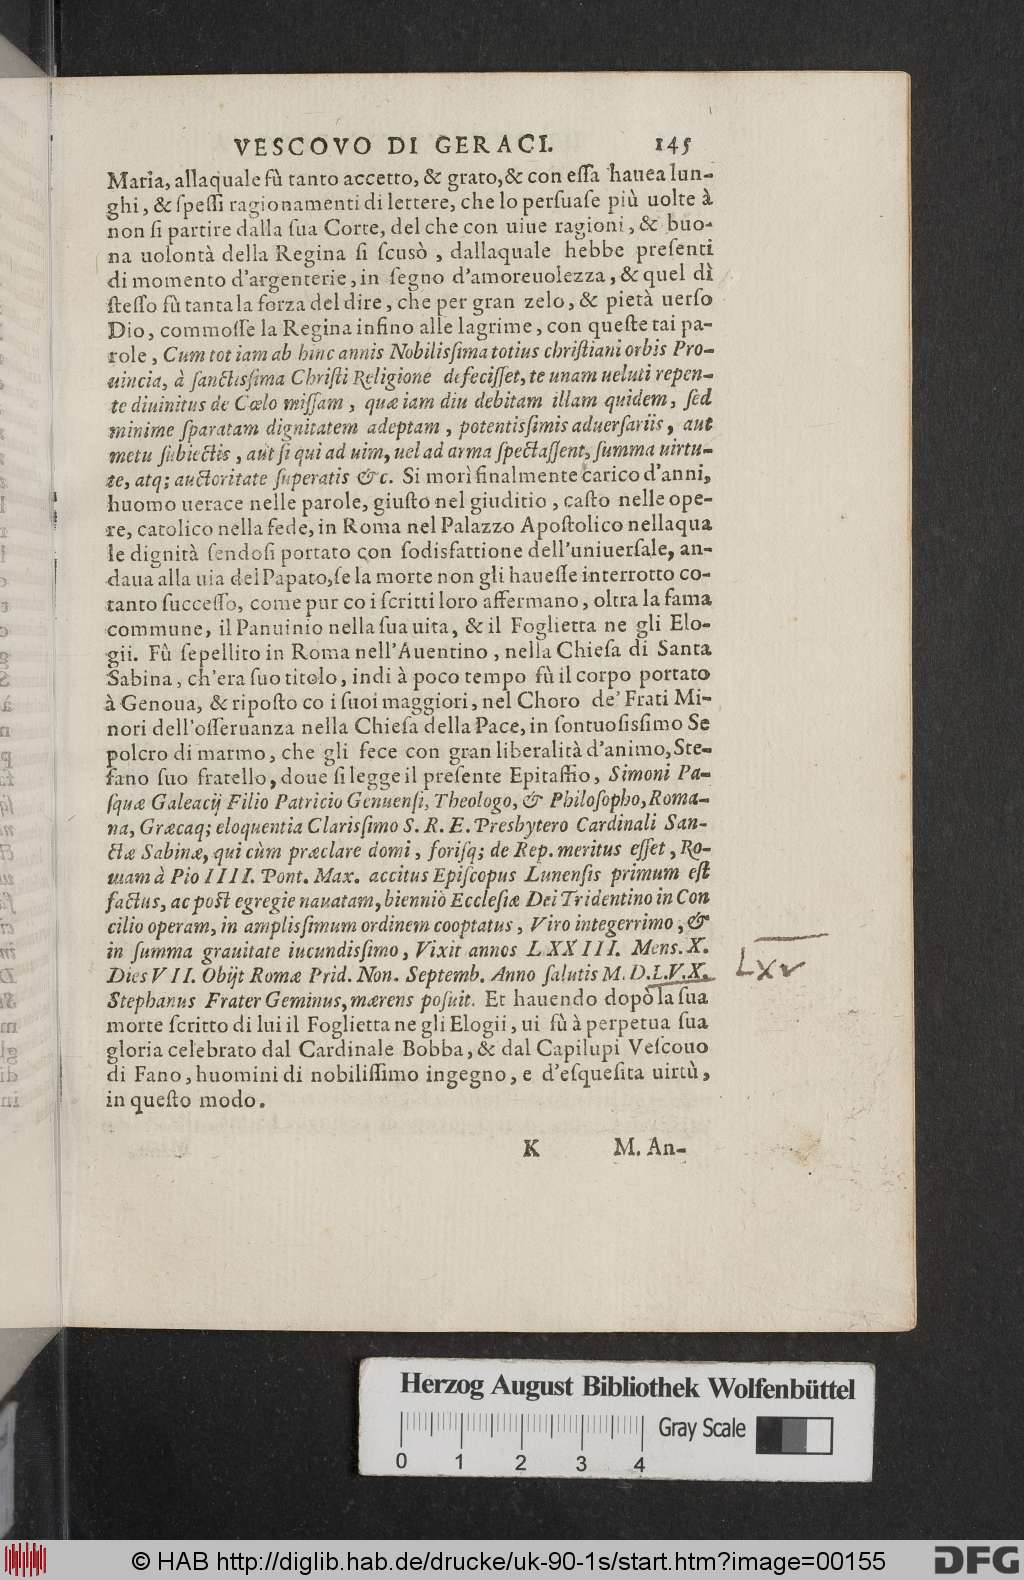 VESCOVO DI GERACI. 145
Maria, allaquale fù tanto accetto, & grato, & con eſſa hauea lun-
ghi, & ſpeſſi ragionamenti di lettere, che lo perſuaſe più uolte à
non ſi partire dalla ſua Corte, del che con uiue ragioni, & buo-
na uolontà della Regina ſi ſcusò, dallaquale hebbe preſenti
di momento d'argenterie, in ſegno d'amoreuolezza, & quel dì
ſteſſo fù tanta la forza del dire, che per gran zelo, & pietà uerſo
Dio, commoſſe la Regina infino alle lagrime, con queſte tai pa-
role, Cum tot iam ab hinc annis Nobiliſsima totius chriſtiani orbis Pro-
uincia, à ſanctiſsima Chriſti Religione defeciſſet, te unam ueluti repen-
te diuinitus de Cœlo miſſam, quæ iam diu debitam illam quidem, ſed
minime ſparatam dignitatem adeptam, potentiſsimis aduerſariis, aut
metu ſubiectis, aut ſi qui ad uim, uel ad arma ſpectaſſent, ſumma uirtu-
te, atq; auctoritate ſuperatis &c. Si morì finalmente carico d'anni,
huomo uerace nelle parole, giuſto nel giuditio, caſto nelle ope-
re, catolico nella fede, in Roma nel Palazzo Apoſtolico nellaqua
le dignità ſendoſi portato con ſodisfattione dell'uniuerſale, an-
daua alla uia del Papato, ſe la morte non gli haueſſe interrotto co-
tanto ſucceſſo, come pur co i ſcritti loro affermano, oltra la fama
commune, il Panuinio nella ſua uita, & il Foglietta ne gli Elo-
gii. Fù ſepellito in Roma nell'Auentino, nella Chieſa di Santa
Sabina, ch'era ſuo titolo, indi à poco tempo fù il corpo portato
à Genoua, & ripoſto co i ſuoi maggiori, nel Choro de' Frati Mi-
nori dell'oſſeruanza nella Chieſa della Pace, in ſontuoſiſsimo Se
polcro di marmo, che gli fece con gran liberalità d'animo, Ste-
fano ſuo fratello, doue ſi legge il preſente Epitaffio, Simoni Pa-
ſquæ Galeacij Filio Patricio Genuenſi, Theologo, & Philoſopho, Roma-
na, Græcaq; eloquentia Clariſsimo S. R. E. Presbytero Cardinali San-
ctæ Sabinæ, qui cùm præclare domi, foriſq; de Rep. meritus eſſet, Ro-
mam à Pio IIII. Pont. Max. accitus Epiſcopus Lunenſis primum eſt
factus, ac poſt egregie nauatam, biennio Eccleſiæ Dei Tridentino in Con
cilio operam, in ampliſsimum ordinem cooptatus, Viro integerrimo, &
in ſumma grauitate iucundiſsimo, Vixit annos LXXIII. Mens. X.
Dies VII. Obijt Romæ Prid. Non. Septemb. Anno ſalutis M. D.L.V.X.
LXV
Stephanus Frater Geminus, mærens poſuit. Et hauendo dopò la ſua
morte ſcritto di lui il Foglietta ne gli Elogii, ui fù à perpetua ſua
gloria celebrato dal Cardinale Bobba, & dal Capilupi Veſcouo
di Fano, huomini di nobiliſſimo ingegno, e d'eſqueſita uirtù,
in queſto modo.
K M. An-
Herzog August Bibliothek Wolfenbüttel
Gray Scale
0 1 2 3 4
© HAB http://diglib.hab.de/drucke/uk-90-1s/start.htm?image=00155
DFG